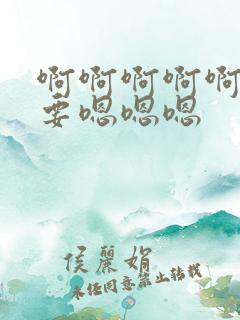 啊啊啊啊啊
要嗯嗯嗯
侯麗娟
未经同意禁止转载